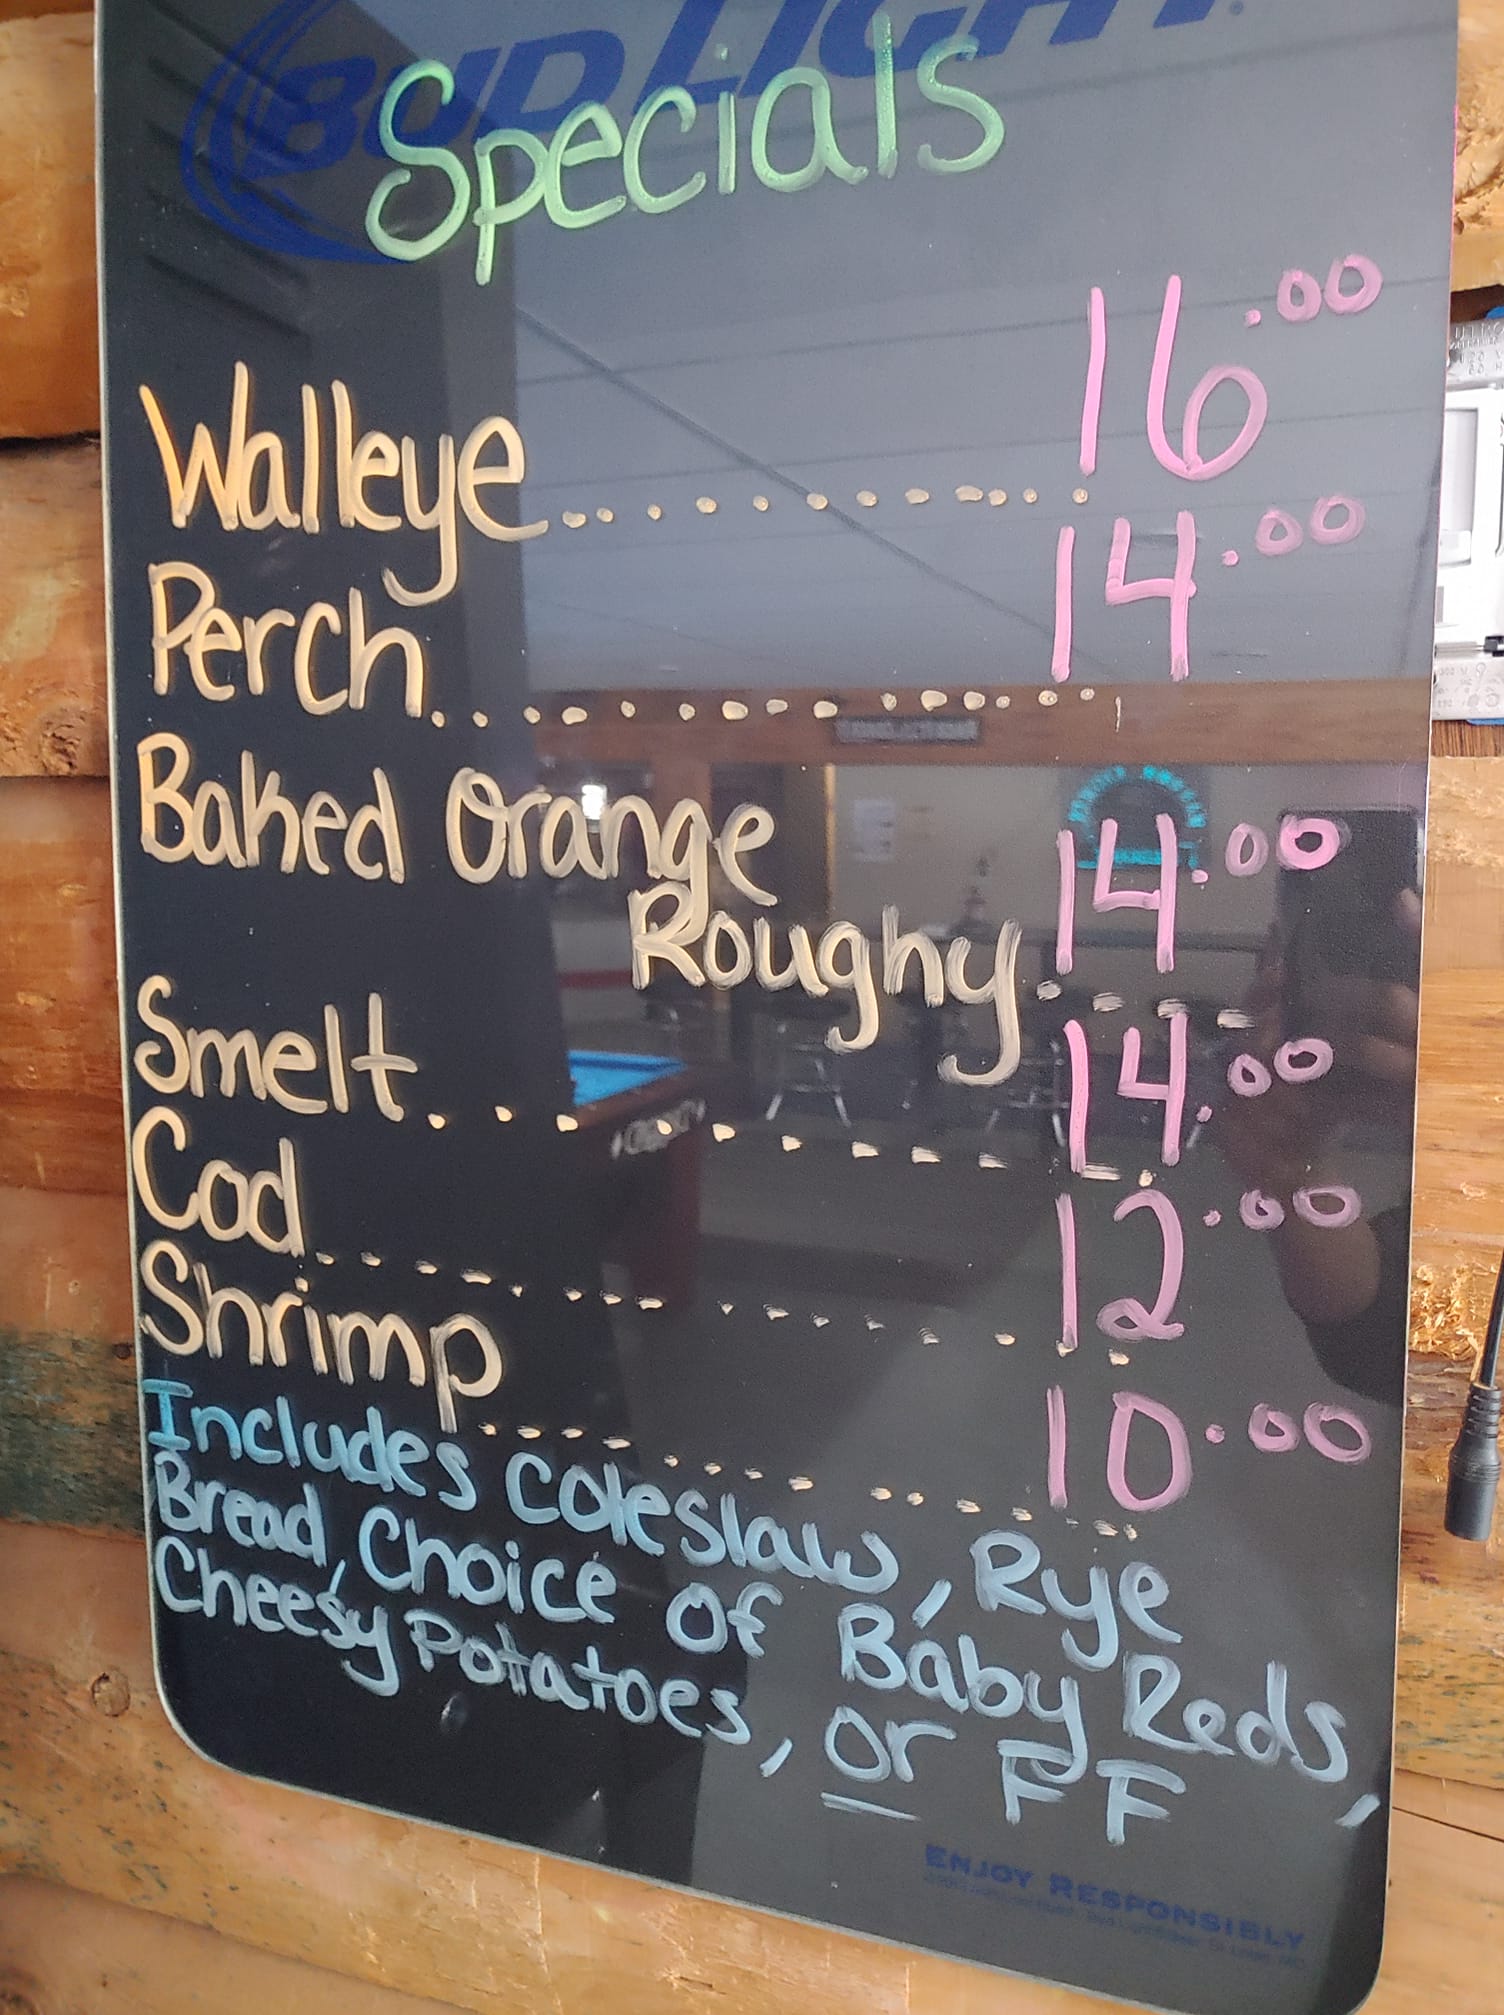 BUD LIGHT
Specials
Walleye.............16.00
Perch...............14.00
Baked Orange
Roughy....14.00
Smelt............14.00
Cod................12.00
Shrimp..............10.00
Includes coleslaw, Rye
Bread, Choice of Baby Reds,
Cheesy Potatoes, or FF
ENJOY RESPONSIBLY